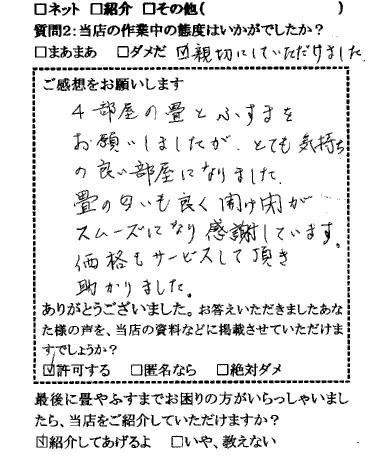 □ネット □紹介 □その他( )
質問2:当店の作業中の態度はいかがでしたか?
□まあまあ □ダメだ ☑親切にしていただけました
ご感想をお願いします
4部屋の畳とふすまを
お願いしましたが、とても気持ち
の良い部屋になりました。
畳の匂いも良く開け閉が
スムーズになり感謝しています。
価格もサービスして頂き
助かりました。
ありがとうございました。お答えいただきましたあな
た様の声を、当店の資料などに掲載させていただけま
すでしょうか?
☑許可する □匿名なら □絶対ダメ
最後に畳やふすまでお困りの方がいらっしゃいまし
たら、当店をご紹介していただけますか?
☑紹介してあげるよ □いや、教えない